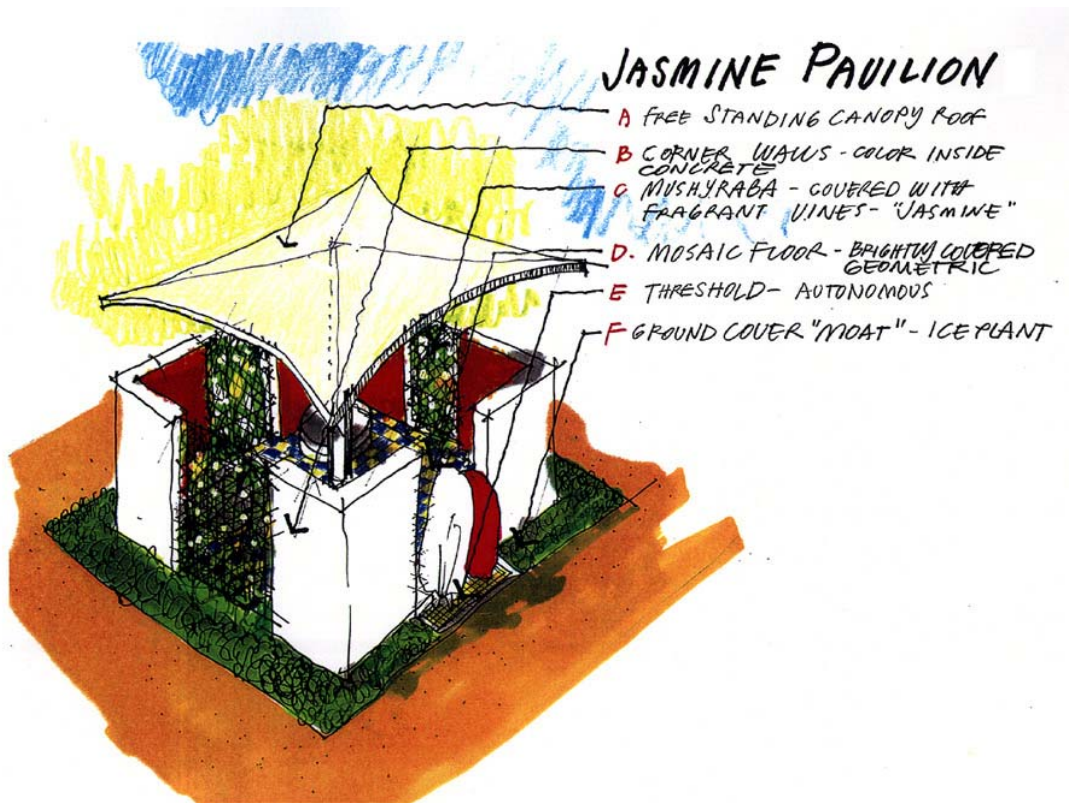 JASMINE PAVILION
A FREE STANDING CANOPY ROOF
B CORNER WALLS - COLOR INSIDE
CONCRETE
C MUSHYRABA - COVERED WITH
FRAGRANT VINES - "JASMINE"
D. MOSAIC FLOOR - BRIGHTLY COVERED
GEOMETRIC
E THRESHOLD - AUTONOMOUS
F GROUND COVER "MOAT" - ICE PLANT